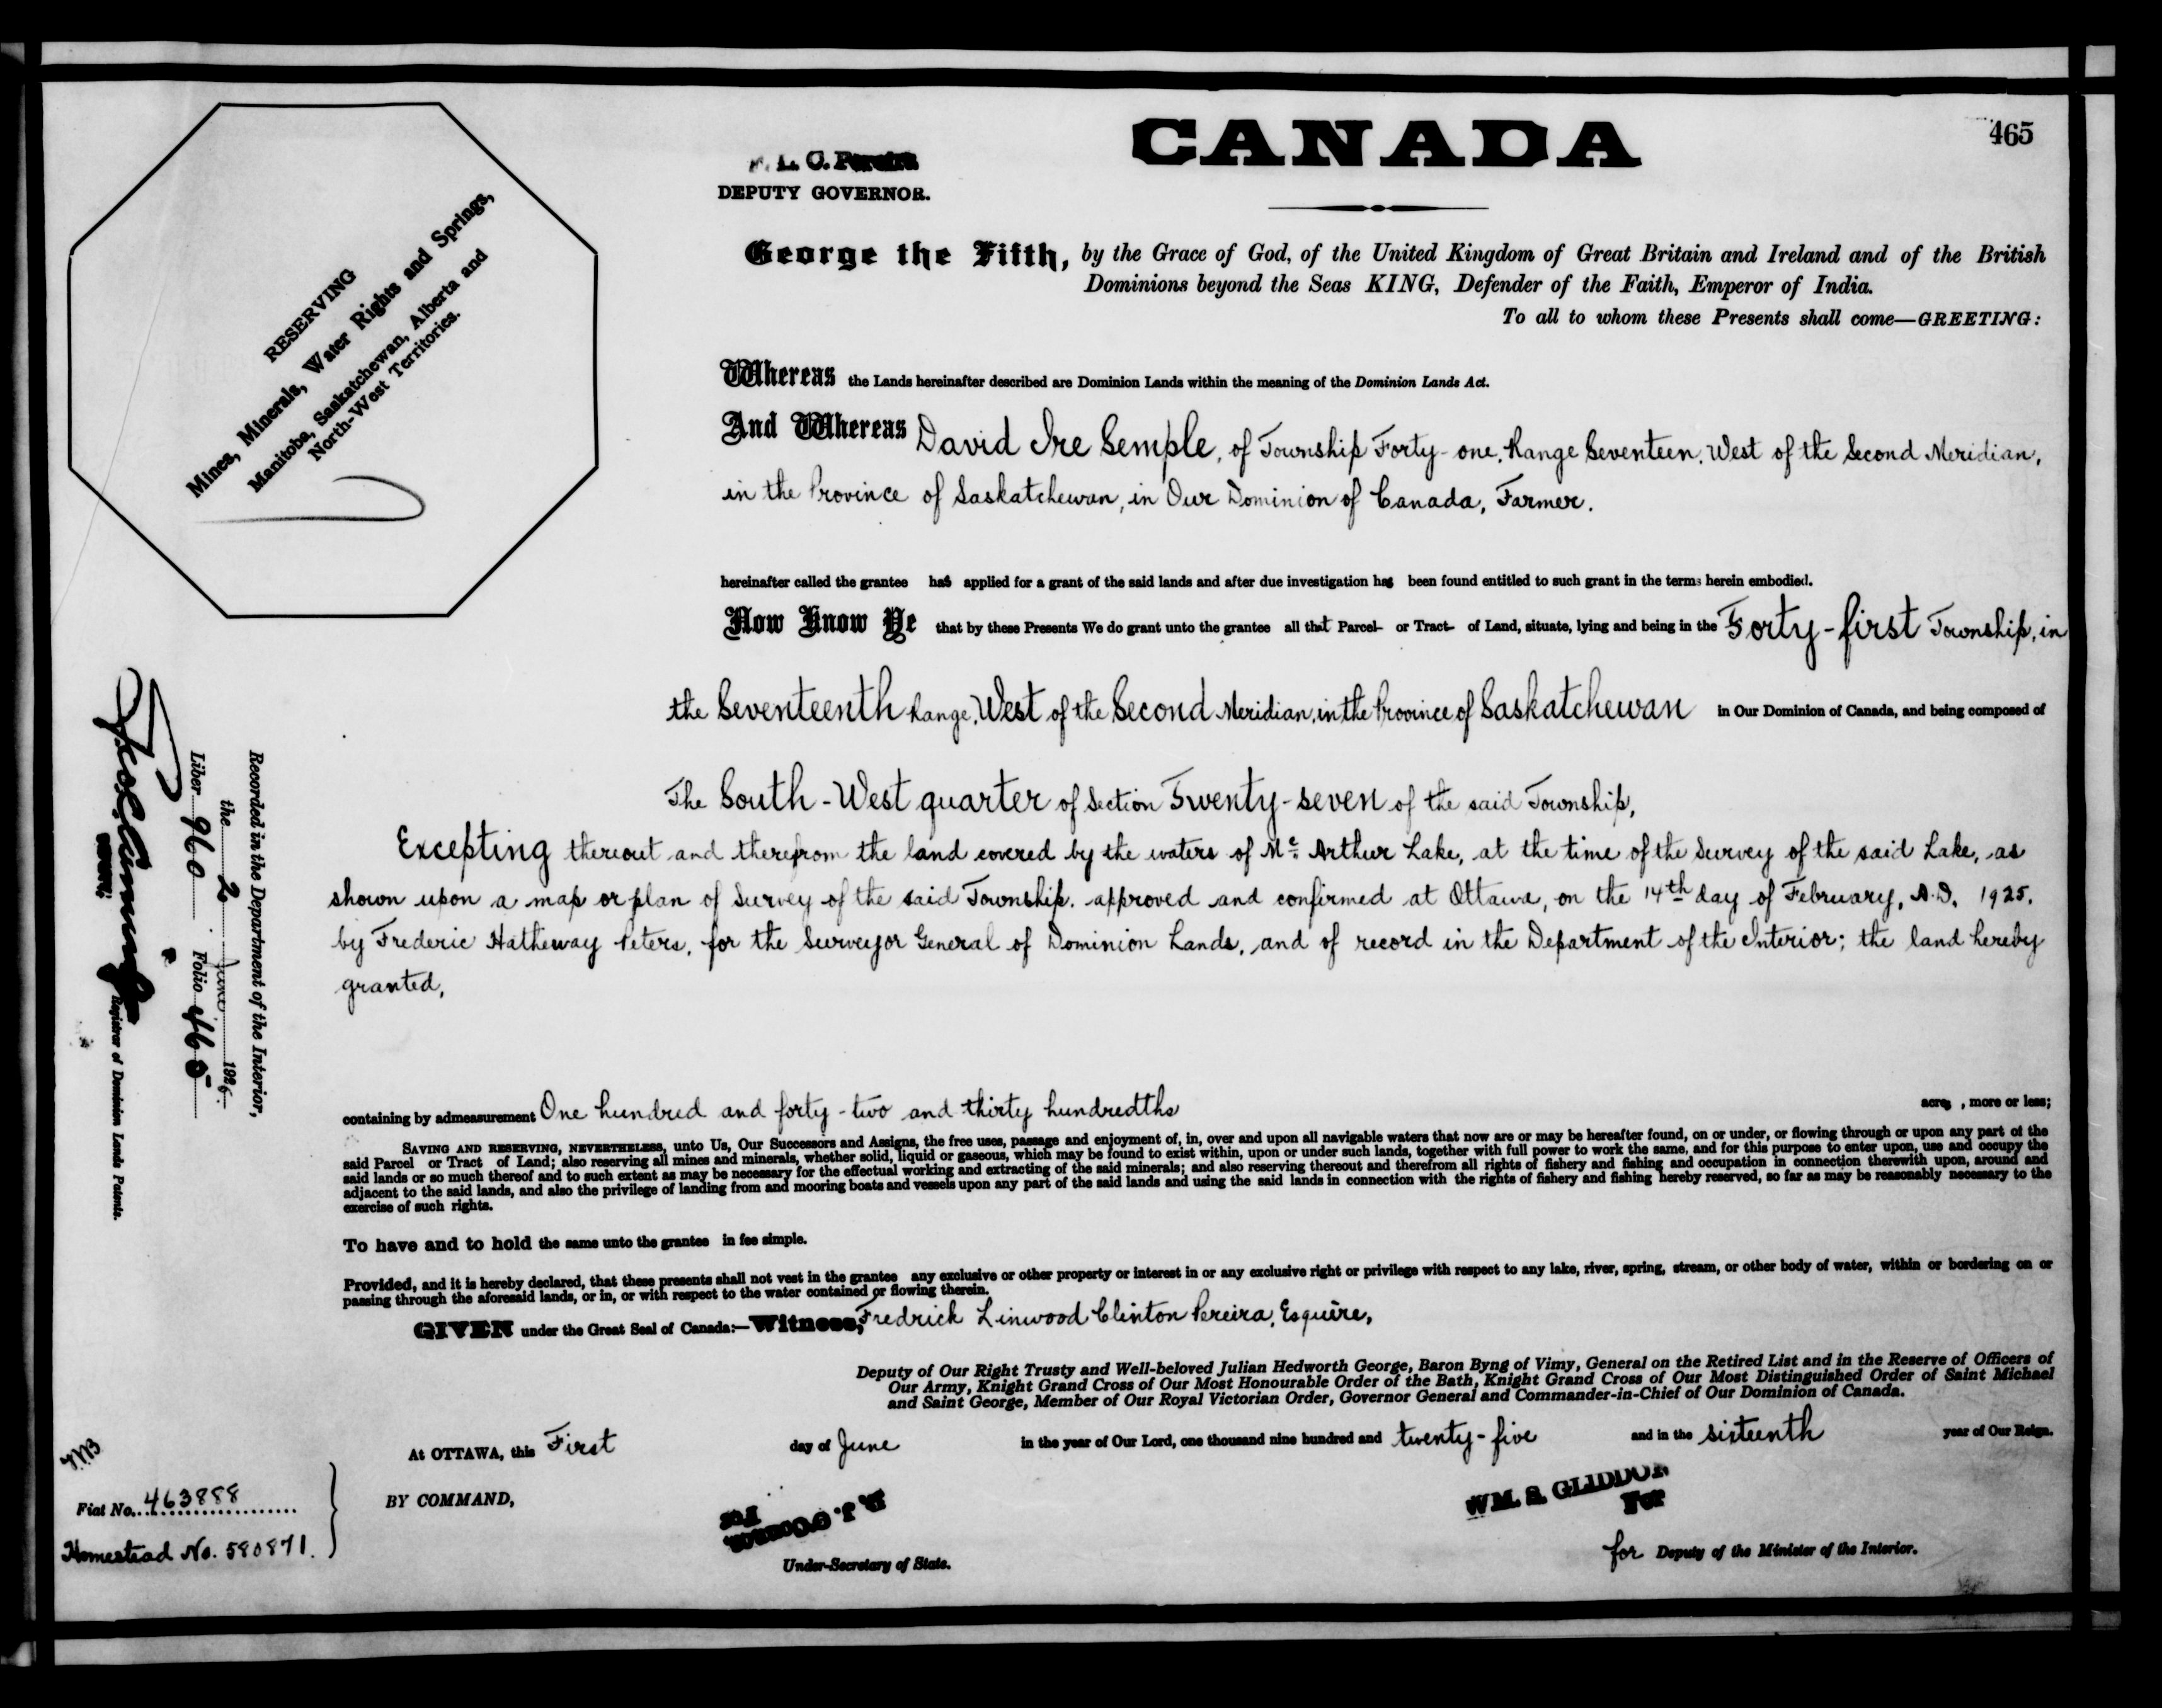 CANADA
465
L. C. Pereira
DEPUTY GOVERNOR.
RESERVING
Mines, Minerals, Water Rights and Springs,
Manitoba, Saskatchewan, Alberta and
North-West Territories.
George the Fifth, by the Grace of God, of the United Kingdom of Great Britain and Ireland and of the British
Dominions beyond the Seas KING, Defender of the Faith, Emperor of India.
To all to whom these Presents shall come—GREETING:
Whereas the Lands hereinafter described are Dominion Lands within the meaning of the Dominion Lands Act.
And Whereas David Ire Semple, of Township Forty-one, Range Seventeen, West of the Second Meridian,
in the Province of Saskatchewan, in Our Dominion of Canada, Farmer.
hereinafter called the grantee has applied for a grant of the said lands and after due investigation has been found entitled to such grant in the terms herein embodied.
Now Know Ye that by these Presents We do grant unto the grantee all that Parcel or Tract of Land, situate, lying and being in the Forty-first Township, in
the Seventeenth Range, West of the Second Meridian, in the Province of Saskatchewan in Our Dominion of Canada, and being composed of
The South-West quarter of Section Twenty-seven of the said Township,
Excepting thereout and therefrom the land covered by the waters of Mc Arthur Lake, at the time of the Survey of the said Lake, as
shown upon a map or plan of Survey of the said Township. approved and confirmed at Ottawa, on the 14th day of February, A.D. 1925.
by Frederic Hatheway Peters, for the Surveyor General of Dominion Lands, and of record in the Department of the Interior; the land hereby
granted,
containing by admeasurement One hundred and forty-two and thirty hundredths acres, more or less;
SAVING AND RESERVING, NEVERTHELESS, unto Us, Our Successors and Assigns, the free uses, passage and enjoyment of, in, over and upon all navigable waters that now are or may be hereafter found, on or under, or flowing through or upon any part of the
said Parcel or Tract of Land; also reserving all mines and minerals, whether solid, liquid or gaseous, which may be found to exist within, upon or under such lands, together with full power to work the same, and for this purpose to enter upon, use and occupy the
said lands or so much thereof and to such extent as may be necessary for the effectual working and extracting of the said minerals; and also reserving thereout and therefrom all rights of fishery and fishing and occupation in connection therewith upon, around and
adjacent to the said lands, and also the privilege of landing from and mooring boats and vessels upon any part of the said lands and using the said lands in connection with the rights of fishery and fishing hereby reserved, so far as may be reasonably necessary to the
exercise of such rights.
To have and to hold the same unto the grantee in fee simple.
Provided, and it is hereby declared, that these presents shall not vest in the grantee any exclusive or other property or interest in or any exclusive right or privilege with respect to any lake, river, spring, stream, or other body of water, within or bordering on or
passing through the aforesaid lands, or in, or with respect to the water contained or flowing therein.
GIVEN under the Great Seal of Canada:—Witness, Fredrick Linwood Clinton Pereira, Esquire,
Deputy of Our Right Trusty and Well-beloved Julian Hedworth George, Baron Byng of Vimy, General on the Retired List and in the Reserve of Officers of
Our Army, Knight Grand Cross of Our Most Honourable Order of the Bath, Knight Grand Cross of Our Most Distinguished Order of Saint Michael
and Saint George, Member of Our Royal Victorian Order, Governor General and Commander-in-Chief of Our Dominion of Canada.
At OTTAWA, this First day of June in the year of Our Lord, one thousand nine hundred and twenty-five and in the sixteenth year of Our Reign.
BY COMMAND,
WM. S. GLIDDON
For
Under-Secretary of State.
for Deputy of the Minister of the Interior.
Fiat No. 463888
Homestead No. 580871.
Recorded in the Department of the Interior,
the 2 June 1925.
Liber 960 Folio 465
Registrar of Dominion Lands Patents.